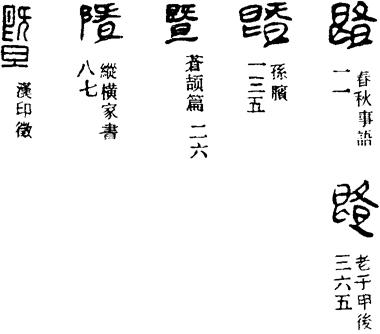 春秋事語
一一
老子甲後
三六五
孫臏
一三五
暨
蒼頡篇 二六
縱橫家書
八七
暨
漢印徵